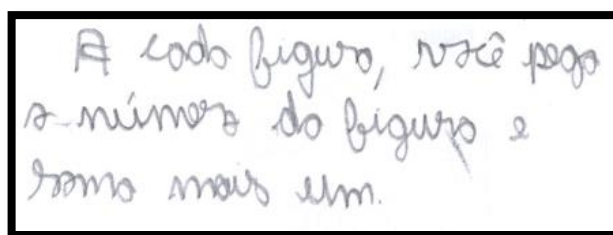 A cada figura, você pega
o número da figura e
soma mais um.